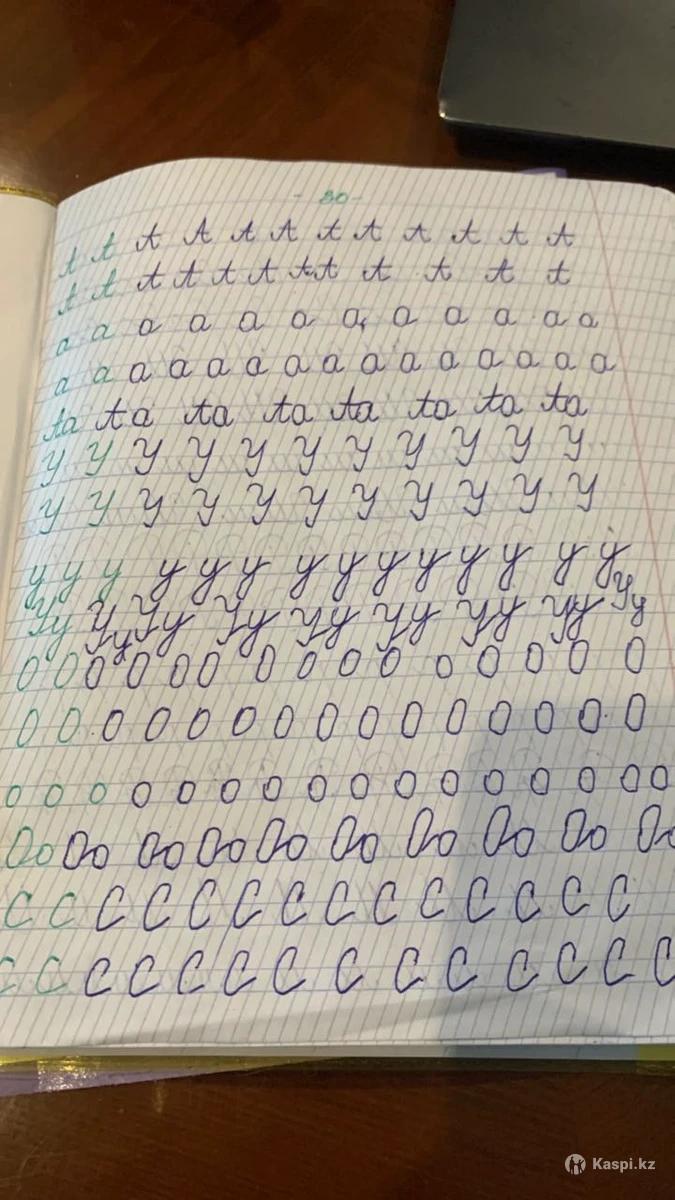 - 30 -
А А А А А А А А А А А А
А А А А А А А А А А А А
а а а а а а а а а а а а
а а а а а а а а а а а а а а а
Аа Аа Аа Аа Аа Аа Аа Аа
У У У У У У У У У У У
У У У У У У У У У У У
у у у у у у у у у у у у у у
Уу Уу Уу Уу Уу Уу Уу Уу Уу
О О О О О О О О О О О О О О О
О О О О О О О О О О О О О О О
о о о о о о о о о о о о о о о о
Оо Оо Оо Оо Оо Оо Оо Оо Оо Оо
С С С С С С С С С С С С С С
С С С С С С С С С С С С С С
Kaspi.kz